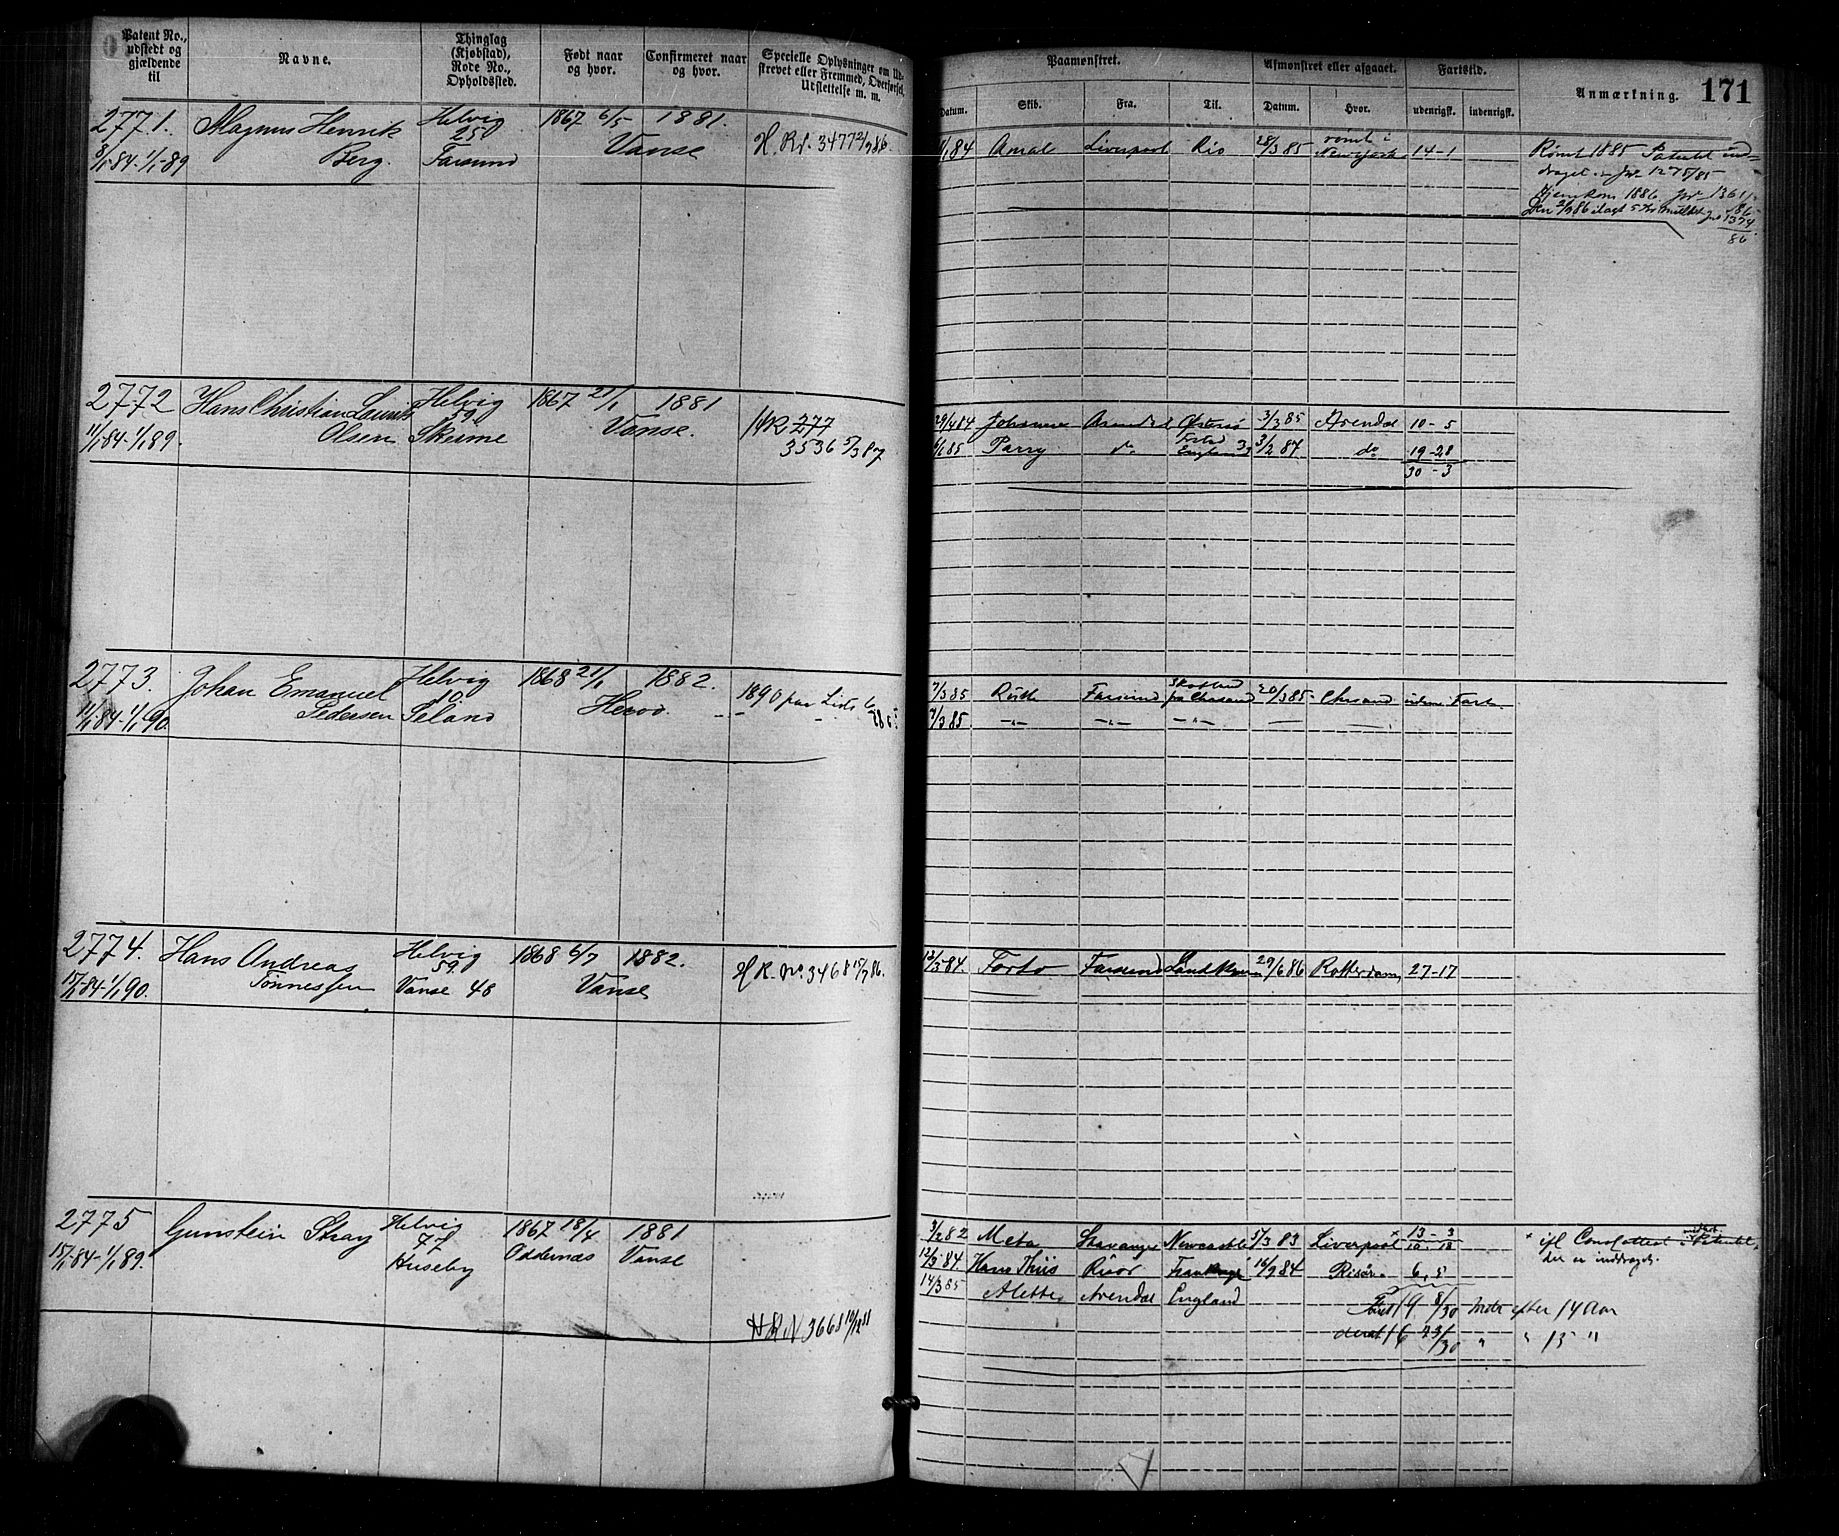 171
Patent No., udstedt og gjældende til
Navne.
Thinglag (Kjøbstad), Rode No., Opholdssted.
Født naar og hvor.
Confirmeret naar og hvor.
Specielle Oplysninger om Udskrevet eller Fremmed, Overførsel, Udslettelse m. m.
Paamønstret.
Afmønstret eller afgaaet.
Fartstid.
Anmærkning.
Datum. Skib. Fra. Til. Datum. Hvor. udenrigsk. indenrigsk.
2771. Magnus Henrik Helvig 1867 6/5 1881.
Berg. 250 Farsund Vanse H. R. Nr. 3477 2/9 86.
8/1-84-1/1-89
84 Amal Liverpool Rio 28/3 85 rømt i Newyork 14-1 Rømt 1885 Patentet inddraget. Jnr 1275/85
Hjemkom 1886. Jnr 1361/86
Den 2/9 86 ilagt 5 Kr Mulkt Jnr 1374/86
2772 Hans Christian Laurits Helvig 1867 21/1 1881
Olsen 59 Skeime Vanse. HR 277
11/1 84-1/1 89. 3536 5/3 87
29/4 84 Johanne Arendal 3/3 85 Arendal 10-5
6/6 85 Parry do England 3/2 87 do 19-28
30-3
2773. Johan Emanuel Helvig 1868 21/1 1882.
Pedersen 10 Seland Herod. 1890 paa Liste
11/1 84-1/1 90.
7/3 85 Ruth Farsund Skotland paa Chrsand 20/3 85 Chrsand uden Fart
7/3 85. -"- -"- -"-
2774. Hans Andreas Helvig 1868 6/7 1882.
Tønnessen 59. Vanse 48 Vanse H R. No. 3468 15/7 86.
15/1-84-1/1 90.
12/3 84. Forto Farsund 29/6 86 Rotterdam, 27-17
2775 Gunstein Stray Helvig 1867 18/4 1881
15/1-84-1/1 89. 47 Huseby Oddernæs Vanse
H R N 3661
3/2 82 Meta Stavanger Newcastle 5/3 83 Liverpool × 13-3
10-18
× ifl Consfattest i Patentet,
der er inddraget.
12/3 84. Hans Thiis Risør 16/9 84 Risør. 6,5
14/3 85 Alette Arendal England
19 8/30 Mdr efter 14 Aar
deraf 16 23/30 " " 15 "